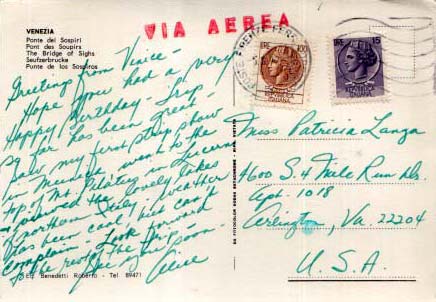 VIA AEREA
VENEZIA
Ponte dei Sospiri
Pont des Soupirs
The Bridge of Sighs
Seufzerbrucke
Punte de los Sospiros
Greeting from Venice -
Hope you had a very
Happy Birthday - Trip
so far has been great -
Saw my first strip show
in Munich, went to the
top of Mt. Pilatus in Lucerne
& toured the lovely lakes
of northern Italy. Weather
has been cool, but can't
complain. Look forward
to the rest of the trip -
See you soon -
Alice
Ediz. Benedetti Roberto - Tel 89471
LIRE 100
LIRE 15
ITALIANA
Miss Patricia Langa
4600 S. 4 Mile Run Dr.
Apt. 1018
Arlington, Va. 22204
U.S.A.